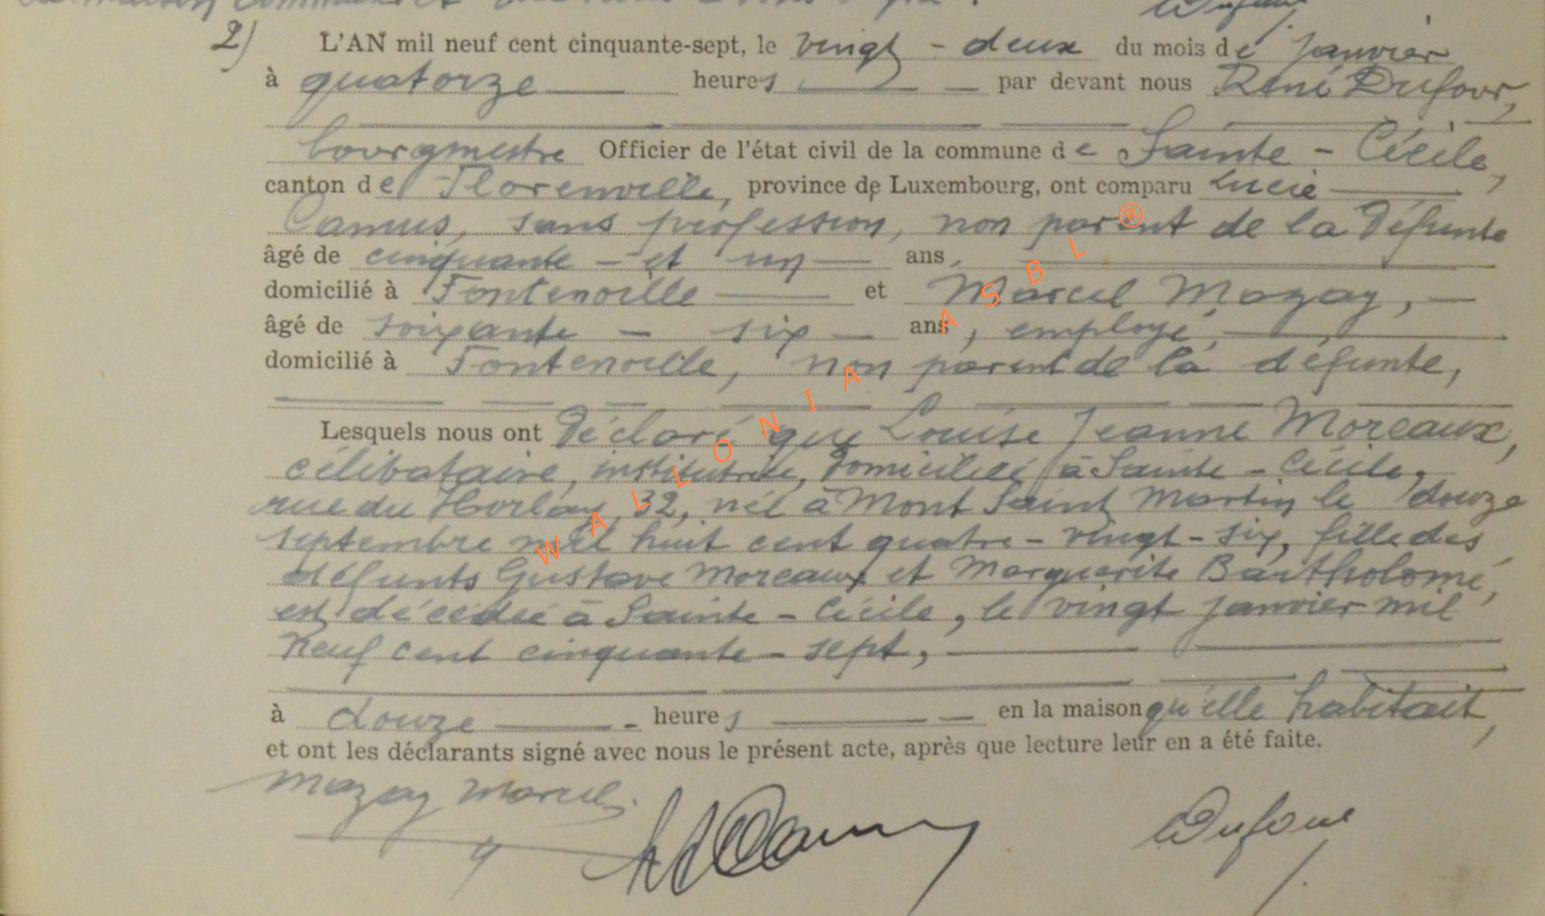 2) L'AN mil neuf cent cinquante-sept, le vingt-deux du mois de janvier
à quatorze heures par devant nous René Dufour,
bourgmestre Officier de l'état civil de la commune de Sainte-Cécile,
canton de Florenville, province de Luxembourg, ont comparu Lucie
Camus, sans profession, non parent de la défunte
âgé de cinquante-et un ans,
domicilié à Fontenoille et Marcel Mazay,
âgé de soixante-six ans, employé,
domicilié à Fontenoille, non parent de la défunte,
Lesquels nous ont déclaré que Louise Jeanne Moreaux,
célibataire, institutrice, domiciliée à Sainte-Cécile,
rue du 32, née à Mont Saint Martin le douze
septembre mil huit cent quatre-vingt-six, fille des
défunts Gustave Moreaux et Marguerite Bartholomé,
est décédée à Sainte-Cécile, le vingt janvier mil
neuf cent cinquante-sept,
à douze heures en la maison qu'elle habitait,
et ont les déclarants signé avec nous le présent acte, après que lecture leur en a été faite.
Mazay Marcel
Dufour
WALLONIA ASBL ®